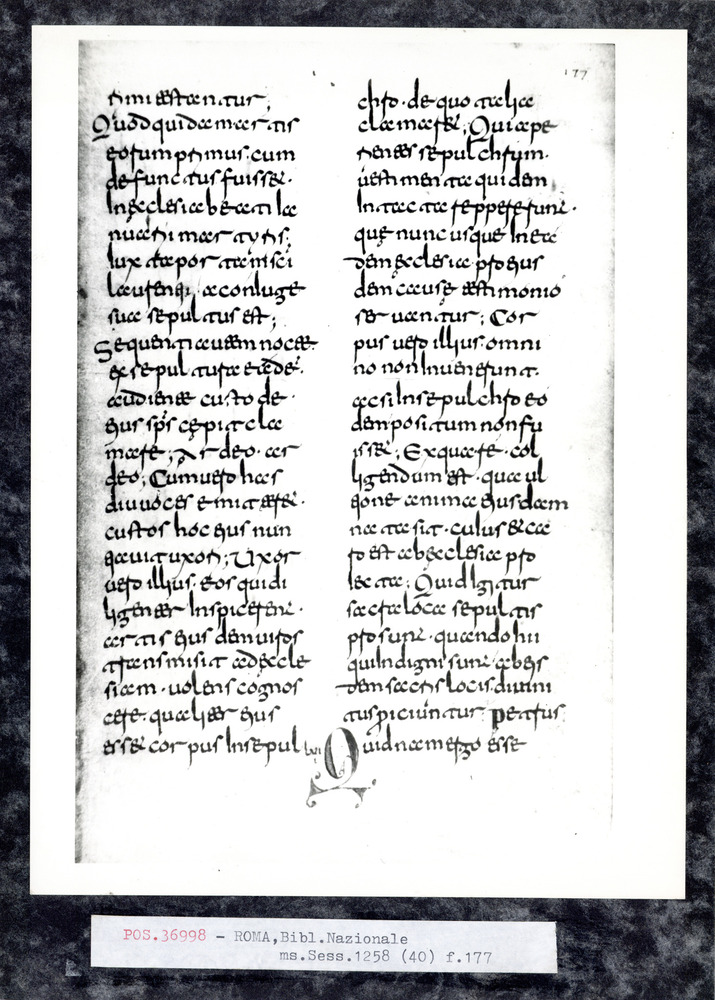 rini testantur;
Quod quidam ex artis
eorum primus cum
defunctus fuisset·
In ęclesia beati Ia
nuarii martyris,
iuxta porta nisci
laurenti· a coniuge
sua sepultus est;
Sequenti autem nocte
ex sepultura eade·
audiente custode·
eius sps cępit cla
mare; Ardeo· ar
deo; Cum uero has
diu uoces emitteret·
custos hoc eius nun
tiauit uxori; Uxor
uero illius· eos qui di
ligenter Inspicerent·
artis eius dem uiros
transmisit ad ęcle
siam· uolens cognos
cere· qualiter eius
esset corpus In sepul
177
chro· de quo talia
clamaret; Qui ape
rientes sepulchrum·
uestimenta quidem
Intacta reppererunt·
quę nunc usque In ea
dem ęclesia pro eius
dem causę testimonio
seruantur; Cor
pus uero illius omni
no non Inuenerunt·
ac si In sepulchro eo
dem positum non fu
isset; Ex qua re· col
ligendum est· qua ul
tione anima eius dam
nata sit· cuius et ca
ro est ab ęclesia pro
iecta; Quid Igitur
sacra loca sepultis
prosunt· quando hii
qui Indigni sunt· ab eis
dem sacris locis diuini
tus proiciuntur; Petrus
Quidnam ergo esse
POS.36998 - ROMA,Bibl.Nazionale
ms.Sess.1258 (40) f.177